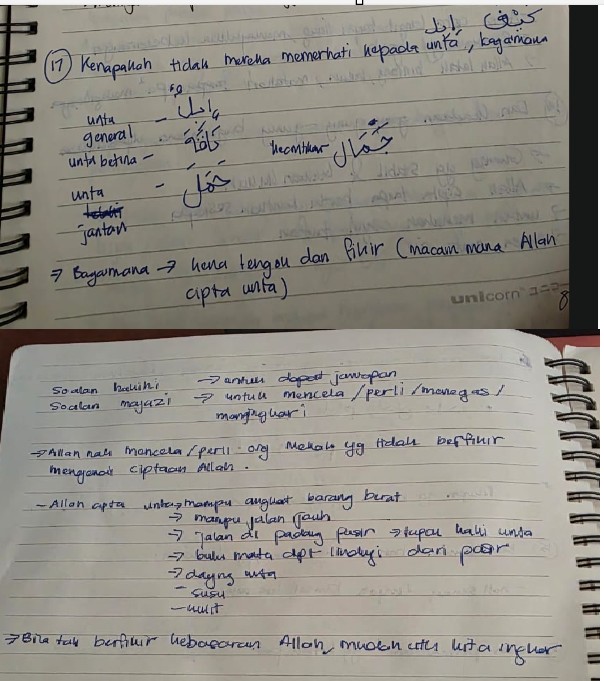 كَيْفَ إِبِل
17 Kenapakah tidak mereka memerhati kepada unta, bagaimana
unta general – إِبِل
unta betina – نَاقَة
kecantikan جَمَال
unta jantan – جَمَل
⇒ Bagaimana → kena tengok dan fikir (macam mana Allah
cipta unta)
unicorn
8
Soalan hakiki → untuk dapat jawapan
Soalan majazi → untuk mencela / perli / menegas /
mengingkari
→ Allah nak mencela / perli org Mekah yg tidak berfikir
mengenai ciptaan Allah.
– Allah cipta unta → mampu angkat barang berat
→ mampu jalan jauh
→ jalan di padang pasir → tapak kaki unta
→ bulu mata dpt lindungi dari pasir
→ daging unta
– susu
– kulit
→ Bila tak berfikir kebesaran Allah, mudah utk kita ingkar